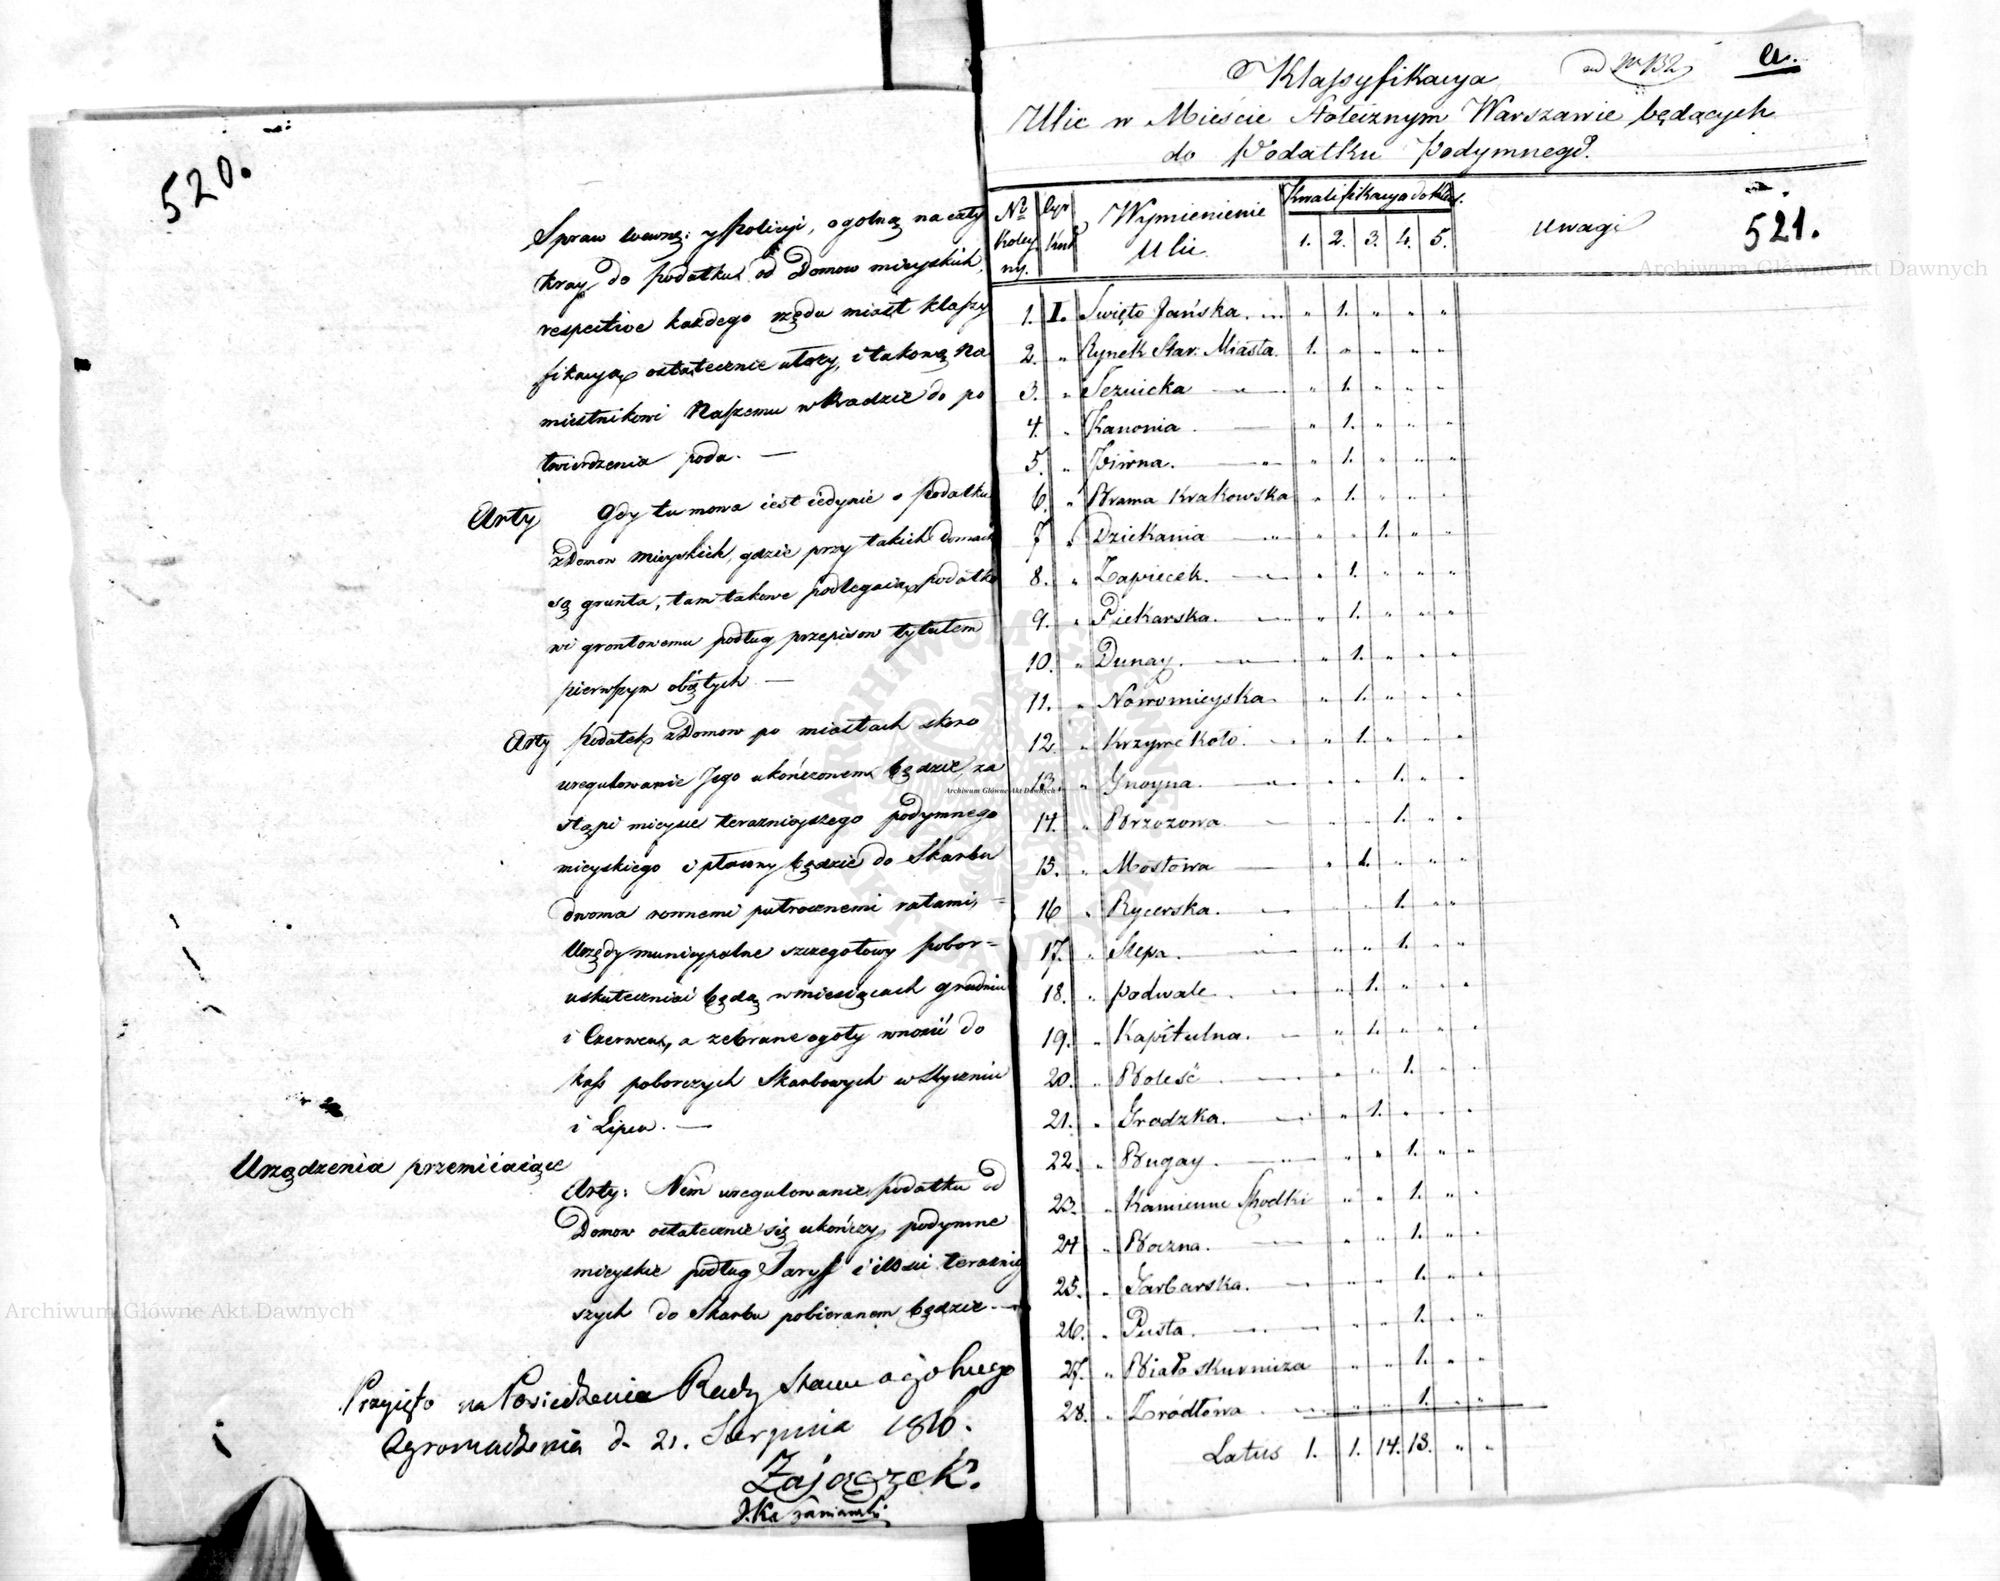 520.
Spraw wewnę: y Policyi, ogolną na cały
kray do podatku od Domow mieyskich
respective każdego rzędu miast klassy
fikacyą ostatecznie ułoży, i takową Na
miestnikowi Naszemu w Radzie do po
twierdzenia poda. —
Arty Gdy tu mowa iest iedynie o podatku
z Domow mieyskich, gdzie przy takich domach
są grunta, tam takowe podlegaią podatko
wi gruntowemu podług przepisow tytułem
pierwszym obiętych —
Arty Podatek z Domow po miastach skoro
uregulowanie Jego ukończonem będzie, za
stąpi mieysce teraznieyszego podymnego
mieyskiego i płacony będzie do Skarbu
dwoma rownemi pułrocznemi ratami, =
Urzędy municypalne szczegołowy pobor =
uskuteczniać będą w miesiącach grudniu
i Czerwcu, a zebrane ogoły wnosić do
kass poborczych Skarbowych w Styczniu
i Lipcu. —
Urządzenia przemiiaiące
Arty: Nim uregulowanie podatku od
Domow ostatecznie się ukończy, podymne
mieyskie podług Taryff i ilosci teraźniey
szych do Skarbu pobieranem będzie. —
Przyięto na Posiedzeniu Rady Stanu ogolnego
Zgromadzenia d. 21. Sierpnia 1816.
Zajączek.
Klassyfikacya
Ulic w Mieście Stołecznym Warszawie będących
do Podatku Podymnego.
521.
Nr Koley ny. Cyr kuł Wymienienie Ulic Kwalifikacya do Klas. 1. 2. 3. 4. 5. Uwagi
1. I. Święto Jańska. " 1. " " "
2. " Rynek Star. Miasta. 1. " " " "
3. " Jezuicka " 1. " " "
4. " Kanonia " 1. " " "
5. " Piwna. " 1. " " "
6. " Brama Krakowska " 1. " " "
7 " Dziekania " " 1. " "
8. " Zapiecek. " 1. " " "
9. " Piekarska. " 1. " " "
10. " Dunay. " 1. " " "
11. " Nowomieyska. " 1. " " "
12. " Krzywe Koło. " 1. " " "
13. " Gnoyna. " " 1. " "
14. " Brzozowa " " 1. " "
15. " Mostowa " 1. " " "
16 " Rycerska. " " 1. " "
17. " Slepa. " " 1. " "
18. " Podwale. " 1. " " "
19. " Kapitulna. " 1. " " "
20. " Boleść " " 1. " "
21. " Grodzka. " 1. " " "
22. " Bugay. " " 1. " "
23. " Kamienne Schodki " " 1. " "
24 " Boczna. " " 1. " "
25. " Garbarska. " " 1. " "
26. " Pusta. " " 1. " "
27. " Białoskurnicza " " 1. " "
28. " Zródłowa " " 1. " "
Latus 1. 1. 14. 13. " "
Archiwum Główne Akt Dawnych
Archiwum Główne Akt Dawnych
Archiwum Główne Akt Dawnych